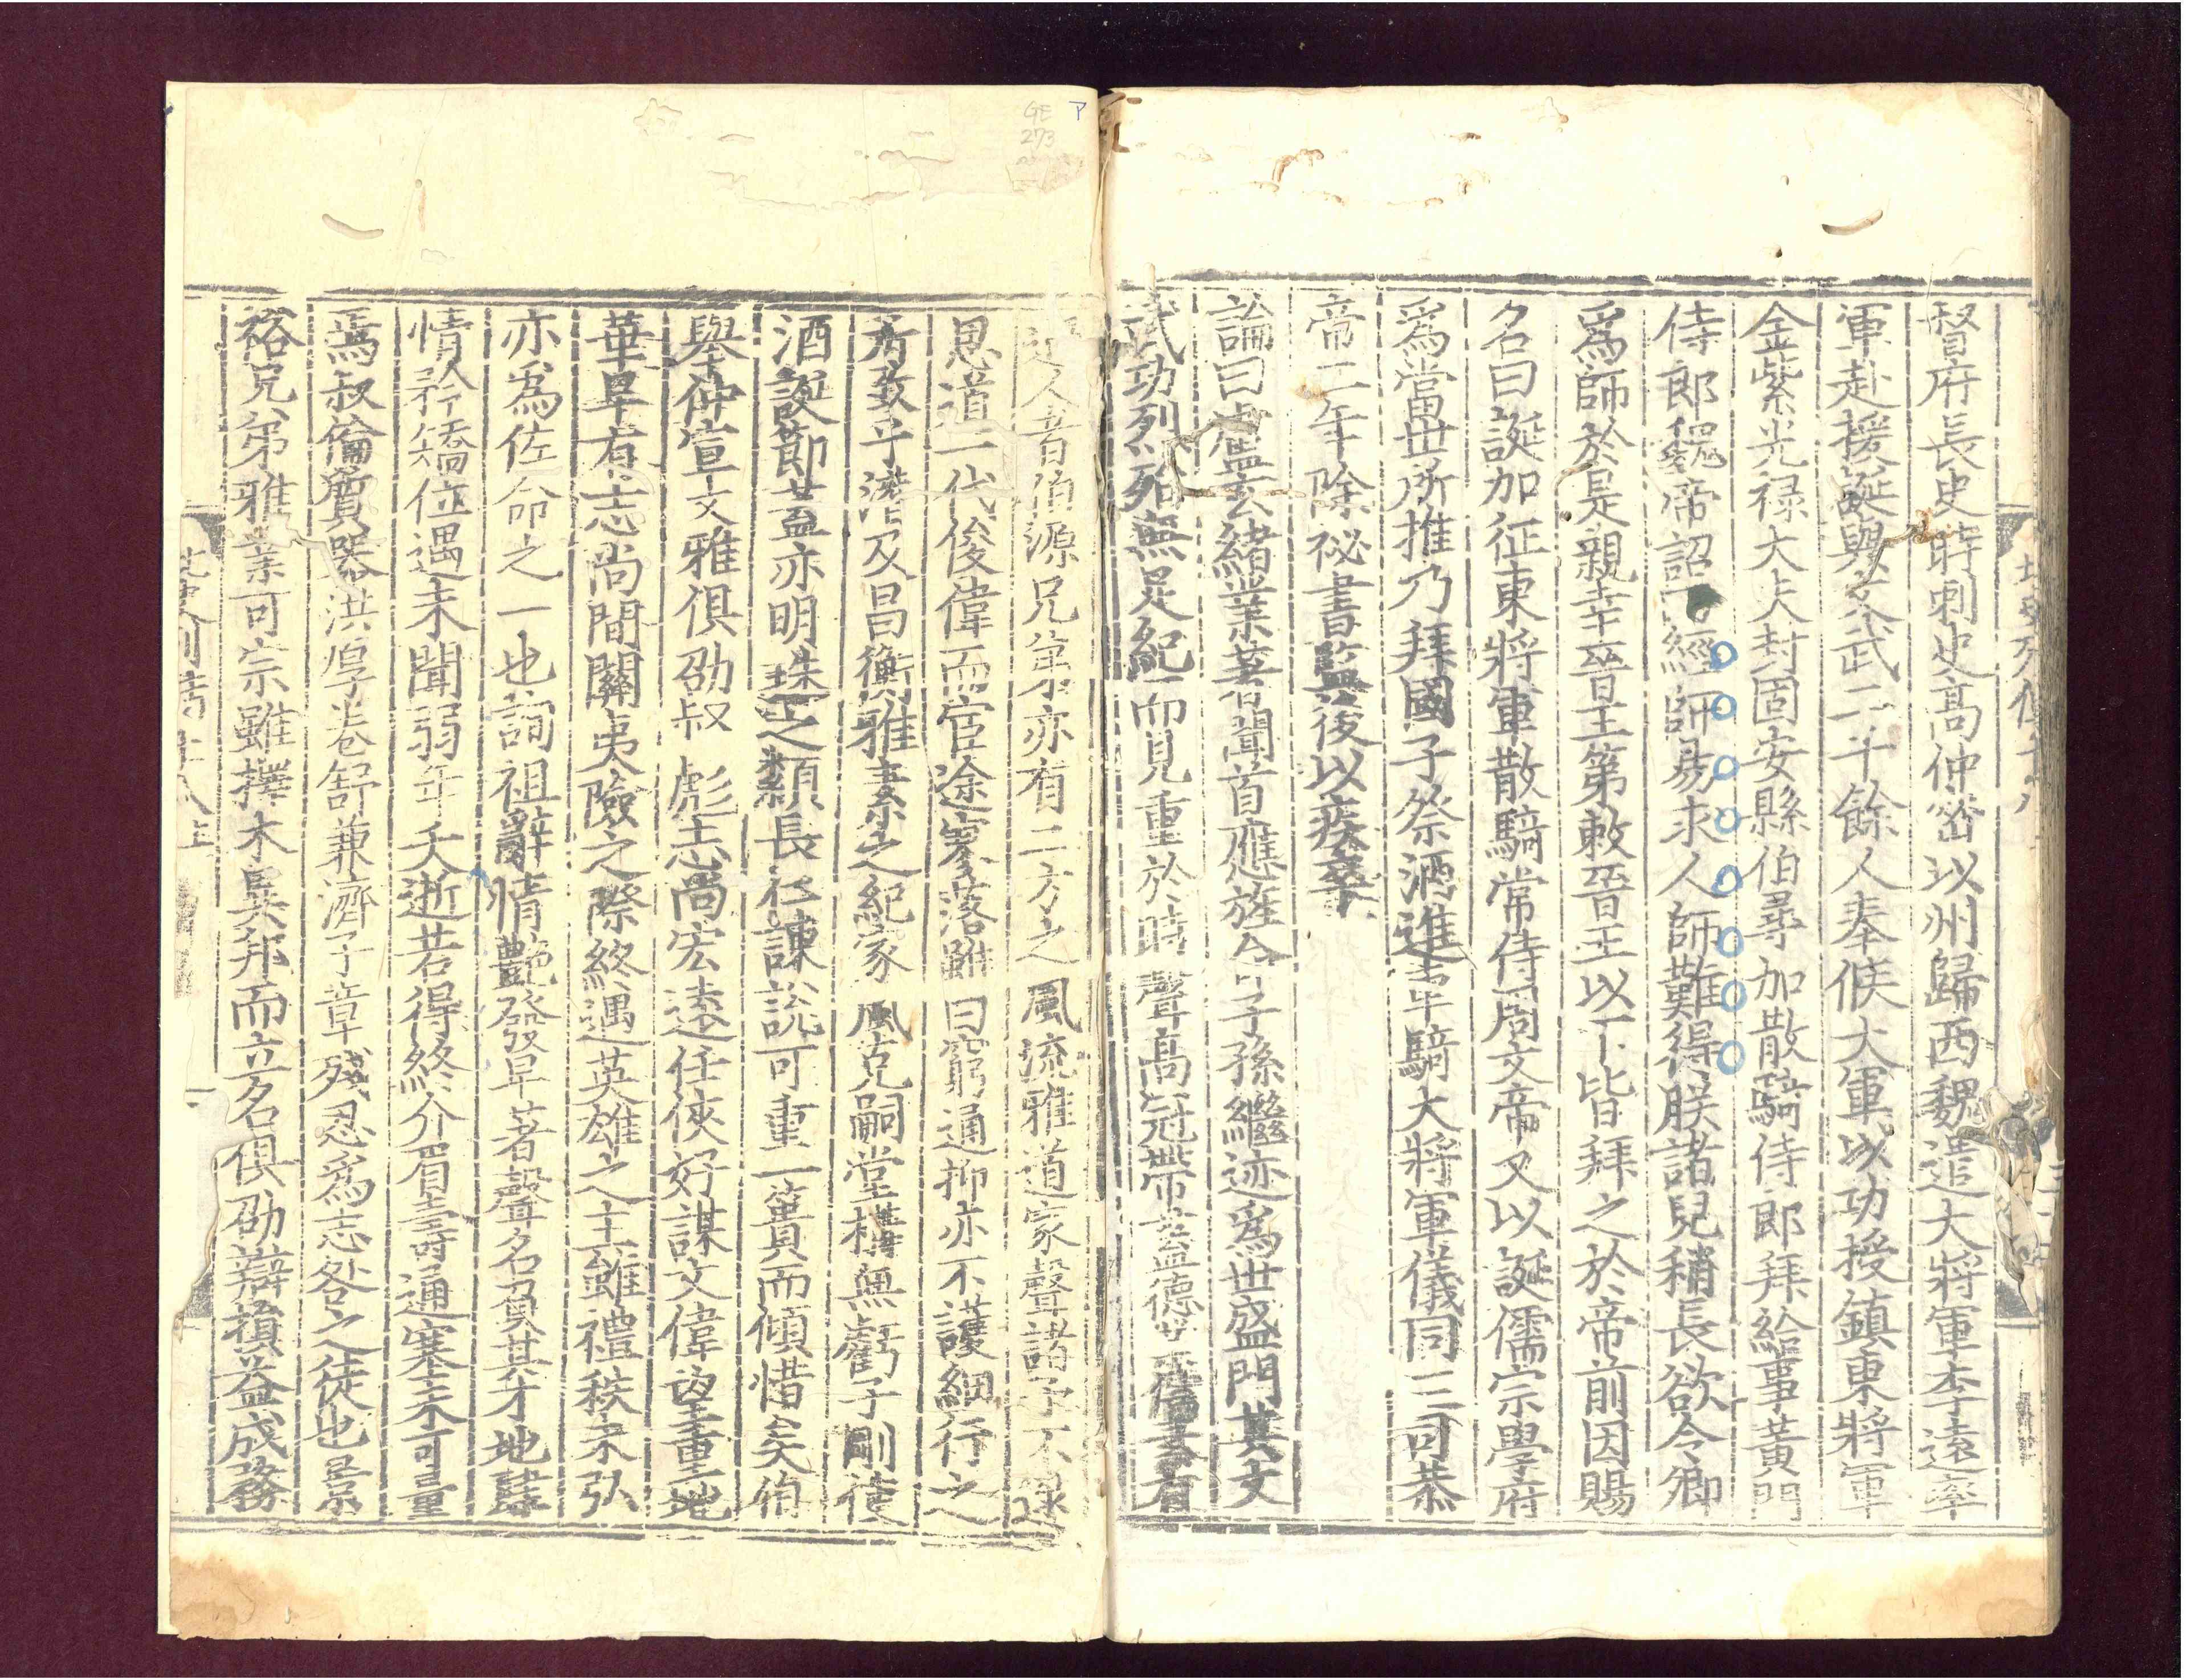 督府長史時刺史高仲密以州歸西魏遣大將軍李遠率
軍赴援誕與文武二千餘人奉候大軍以功授鎮東將軍
金紫光禄大夫封固安縣伯尋加散騎侍郎拜給事黃門
侍郎魏帝詔曰經師易求人師難得朕諸兒稍長欲令卿
爲師於是親幸晉王第敕晉王以下皆拜之於帝前因賜
名曰誕加征東將軍散騎常侍周文帝又以誕儒宗學府
爲當世所推乃拜國子祭酒進車騎大將軍儀同三司恭
帝二年除祕書監後以疾卒
論曰盧玄緒業著聞首應旌命子孫繼迹爲世盛門其文
武功列殆無足紀而見重於時聲高冠帶蓋德業儒素有
過人者伯源兄弟亦有二方之風流雅道家聲諸子不逮
思道一代俊偉而官途寥落雖曰窮通抑亦不護細行之
所致乎潜及昌衡雅素之紀家風克嗣堂構無虧子剛使
酒誕節蓋亦明珠之纇長仁諫說可重一簣而傾惜矣伯
舉仲宣文雅俱劭叔彪志尚宏遠任俠好謀文偉望重地
華早有志尚間關夷險之際終遇英雄之主雖禮秩未弘
亦爲佐命之一也詢祖辭情艷發早著聲名負其才地肆
情矜矯位遇未聞弱年夭逝若得終介眉壽通塞未可量
焉叔倫質器洪厚卷舒兼濟子章殘忍爲志咎之徒也景
裕兄弟雅業可宗雖擇木異邦而立名俱劭辯損益成務
GE
273